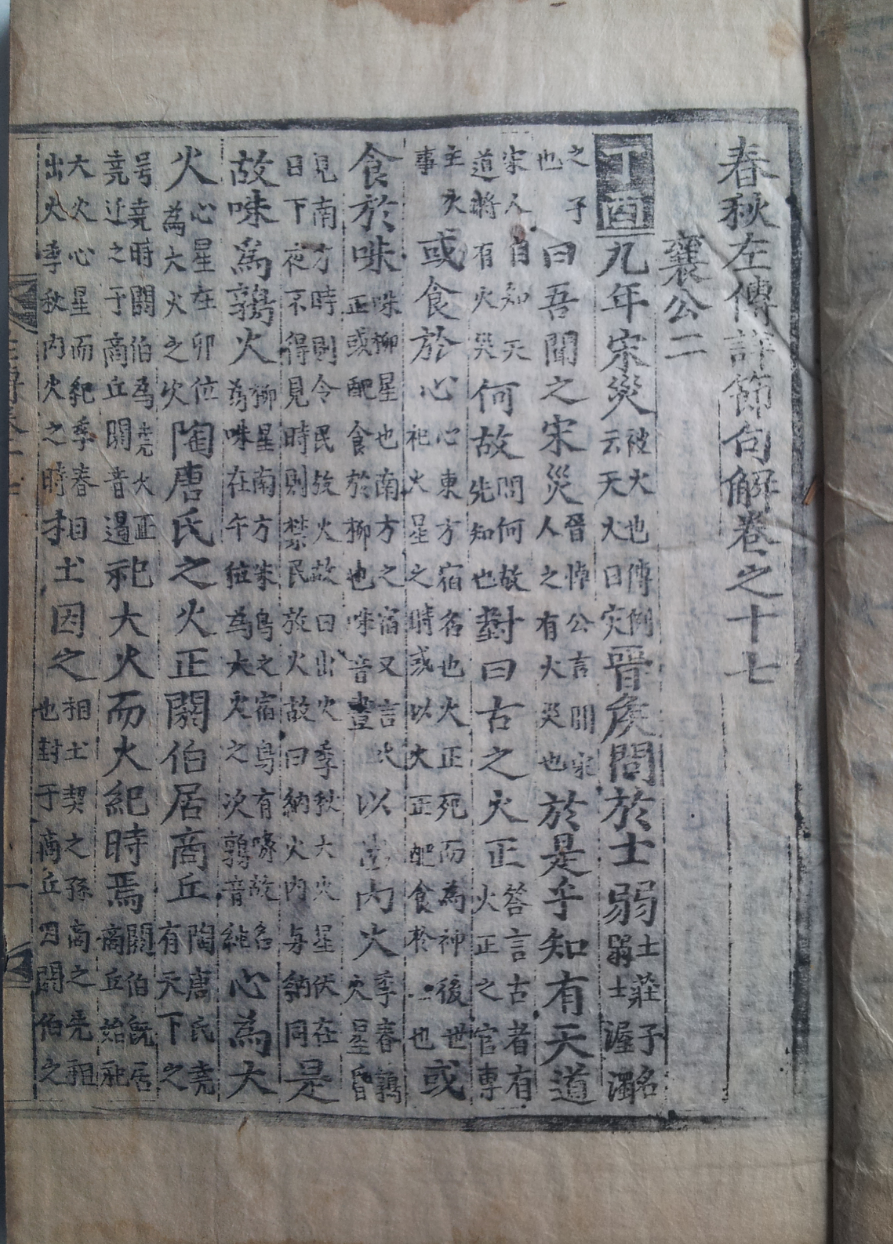 春秋左傳詳節句解卷之十七
襄公二
丁酉九年宋災被火也傳例云天火曰灾晉侯問於士弱士莊子名弱士渥濁
之子也曰吾聞之宋災晉悼公言聞宋人之有火災也於是乎知有天道
宋人自知天道將有火災何故問何故先知也對曰古之火正答言古者有火正之官專
主火事或食於心心東方宿名也火正死而為神後世祀火星之時或以火正配食於心也或
食於咮咮柳星也南方之宿又言火正或配食於柳也咮音晝以出內火季春鶉火星昏
見南方時則令民放火故曰出火季秋大火星伏在日下夜不得見時則禁民放火故曰納火內与納同是
故咮為鶉火柳星南方朱鳥之宿鳥有喙故名為咮在午位為大火之次鶉音純心為大
火心星在卯位為大火之次陶唐氏之火正閼伯居商丘陶唐氏堯有天下之
号堯時閼伯為堯火正堯迁之于商丘閼音遏祀大火而火紀時焉閼伯既居商丘始祀
大火心星而紀季春出火季秋內火之時相土因之相土契之孫商之先祖也封于商丘因閼伯之